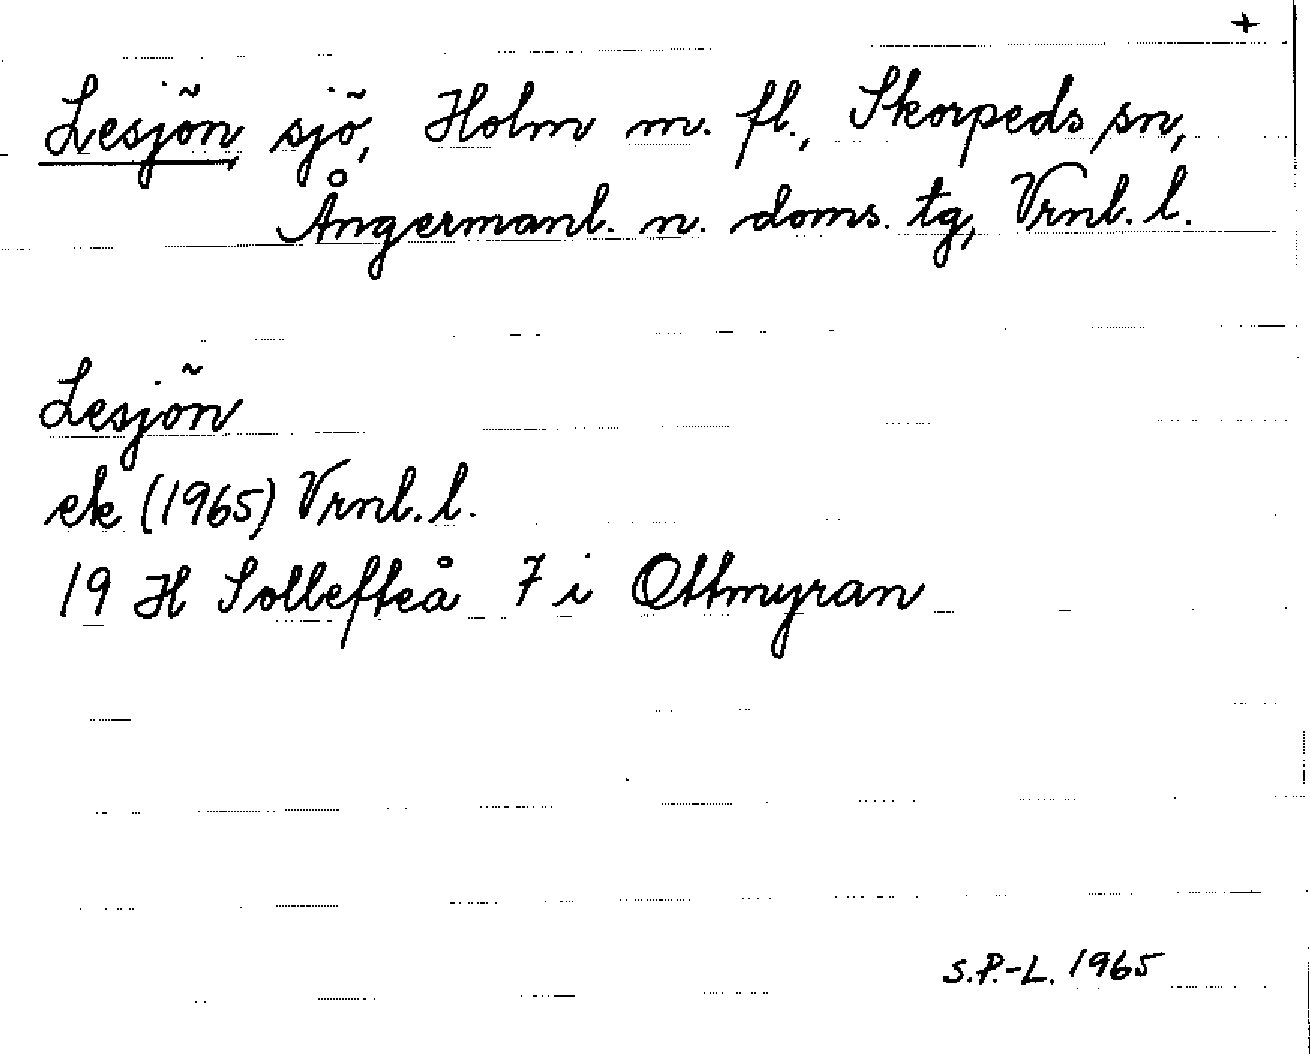 +
Lesjön, sjö, Holm m. fl., Skorpeds sn,
Ångermanl. n. doms. tg, Vrnl. l.
Lesjön
ek (1965) Vrnl. l.
19 H Sollefteå 7 i Ottmyran
S.P.-L. 1965